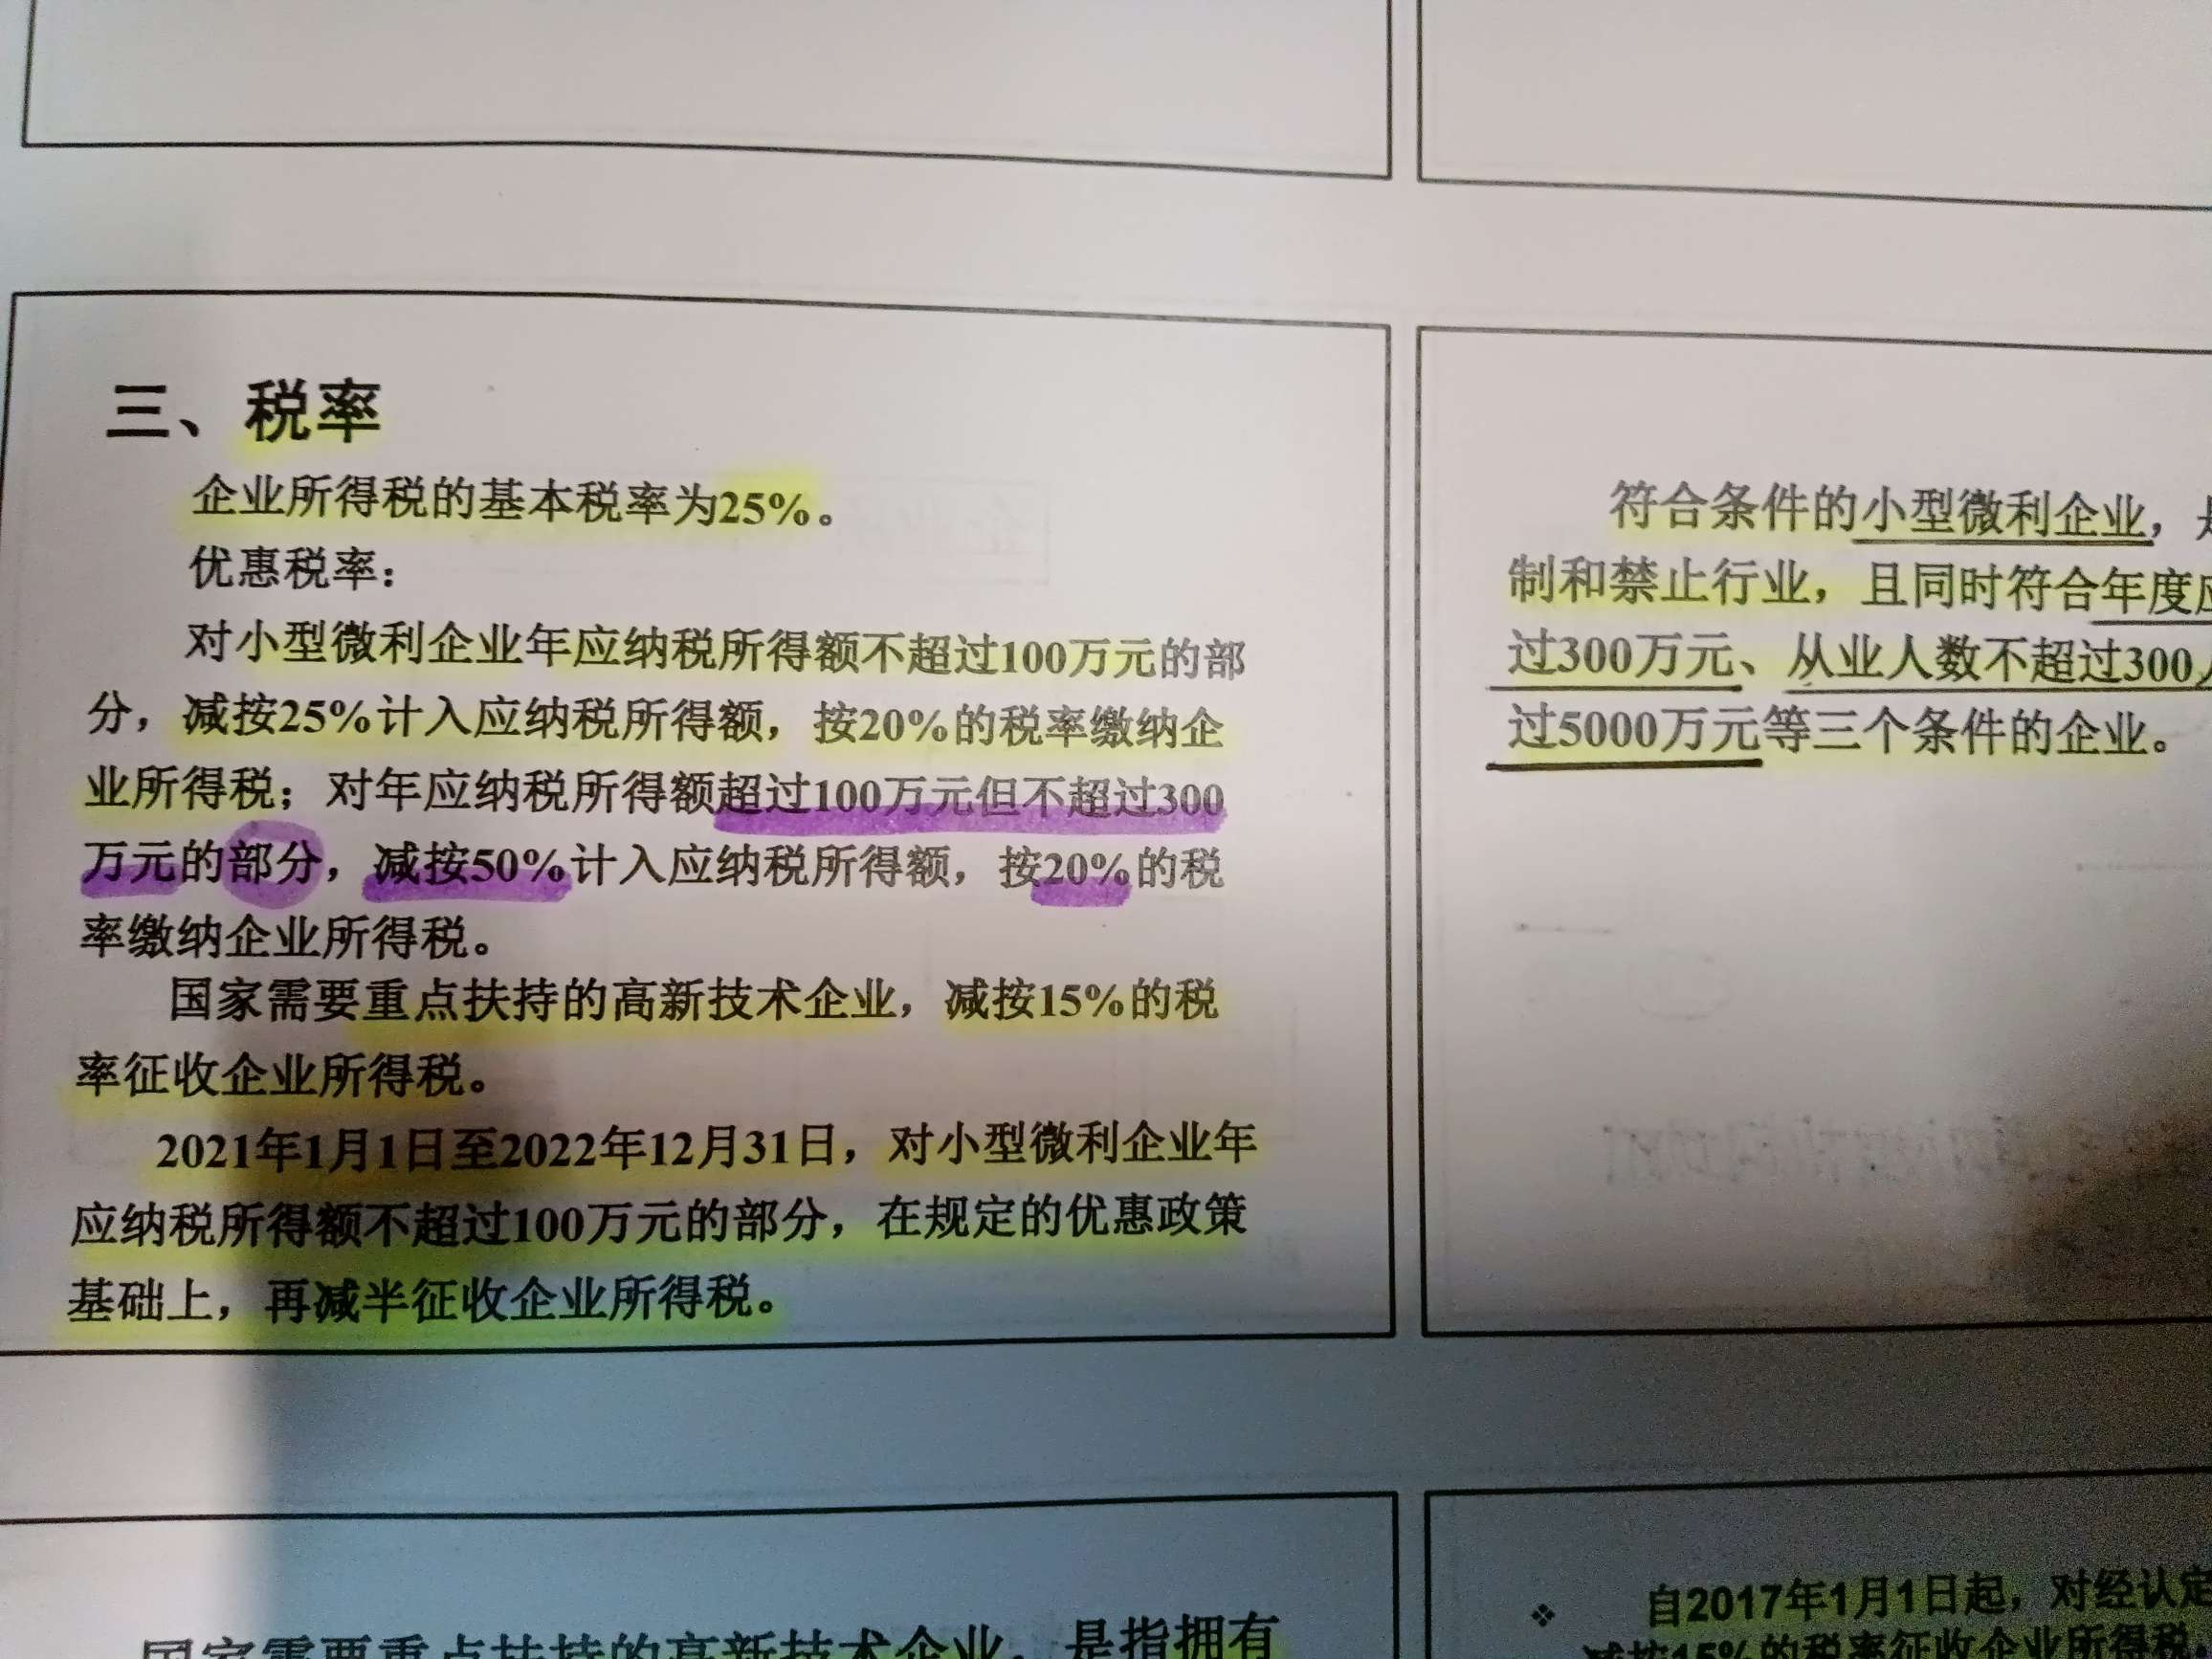 三、税率
企业所得税的基本税率为25%。
优惠税率：
对小型微利企业年应纳税所得额不超过100万元的部
分，减按25%计入应纳税所得额，按20%的税率缴纳企
业所得税；对年应纳税所得额超过100万元但不超过300
万元的部分，减按50%计入应纳税所得额，按20%的税
率缴纳企业所得税。
国家需要重点扶持的高新技术企业，减按15%的税
率征收企业所得税。
2021年1月1日至2022年12月31日，对小型微利企业年
应纳税所得额不超过100万元的部分，在规定的优惠政策
基础上，再减半征收企业所得税。
符合条件的小型微利企业，
制和禁止行业，且同时符合年度应
过300万元、从业人数不超过300人
过5000万元等三个条件的企业。
国家需要重点扶持的高新技术企业，是指拥有
❖ 自2017年1月1日起，对经认定
减按15%的税率征收企业所得税